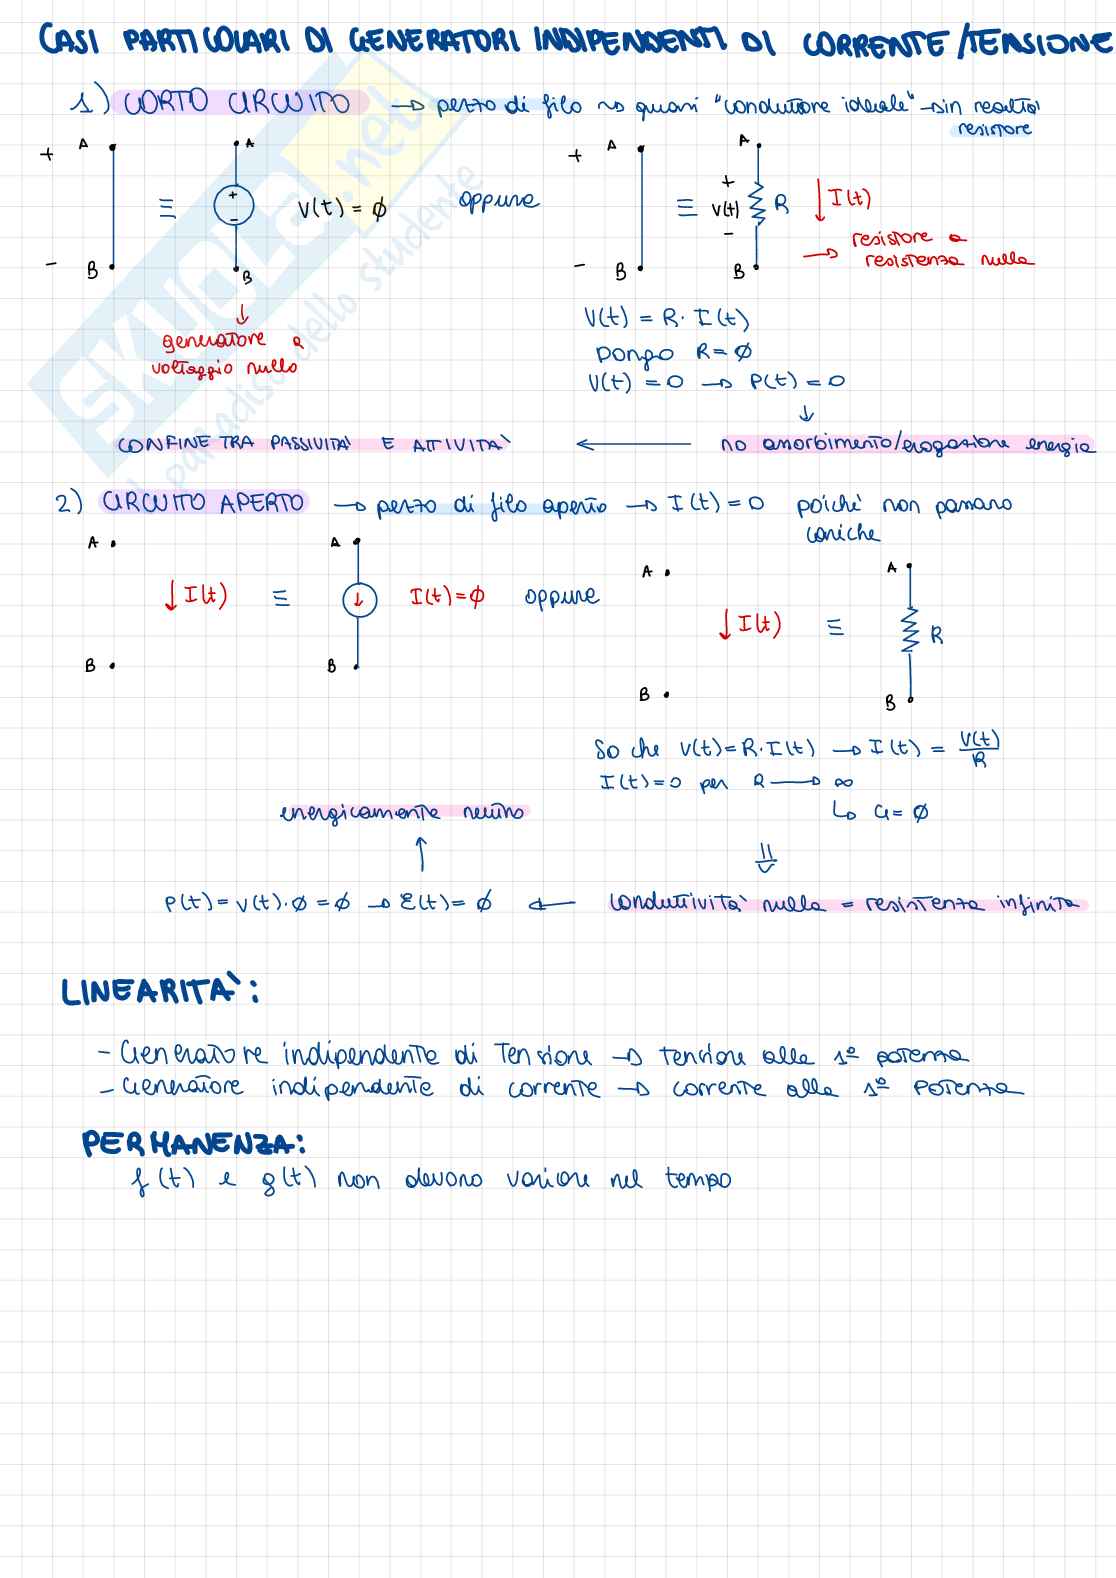 CASI PARTICOLARI DI GENERATORI INDIPENDENTI DI CORRENTE/TENSIONE
1) CORTO CIRCUITO → pezzo di filo → quasi "conduttore ideale" → in realtà
resistore
+ A A + A A
≡ + - V(t) = ∅ oppure ≡ + V(t) - R ↓ I(t)
- B B - B B
→ resistore a
resistenza nulla
↓
generatore a
voltaggio nullo
V(t) = R · I(t)
Pongo R = ∅
V(t) = 0 → P(t) = 0
↓
CONFINE TRA PASSIVITA' E ATTIVITA' ← no assorbimento/erogazione energia
2) CIRCUITO APERTO → pezzo di filo aperto → I(t) = 0 poiché non passano
cariche
A A A A
↓ I(t) ≡ ↓ I(t) = ∅ oppure ↓ I(t) ≡ R
B B B B
So che V(t) = R · I(t) → I(t) = V(t)/R
I(t) = 0 per R → ∞
↳ G = ∅
energicamente neutro
↑ ⇓
P(t) = V(t) · ∅ = ∅ → E(t) = ∅ ← conduttività nulla = resistenza infinita
LINEARITA':
- Generatore indipendente di Tensione → tensione alla 1º potenza
- Generatore indipendente di corrente → corrente alla 1º potenza
PERMANENZA:
f(t) e g(t) non devono variare nel tempo
SKUOLA.net
il paradiso dello studente